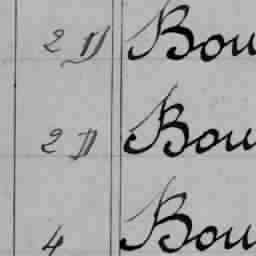 2 D Bou
2 D Bou
4 Bou